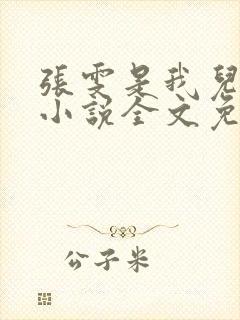 張雯是我兒
小說全文免
公子米